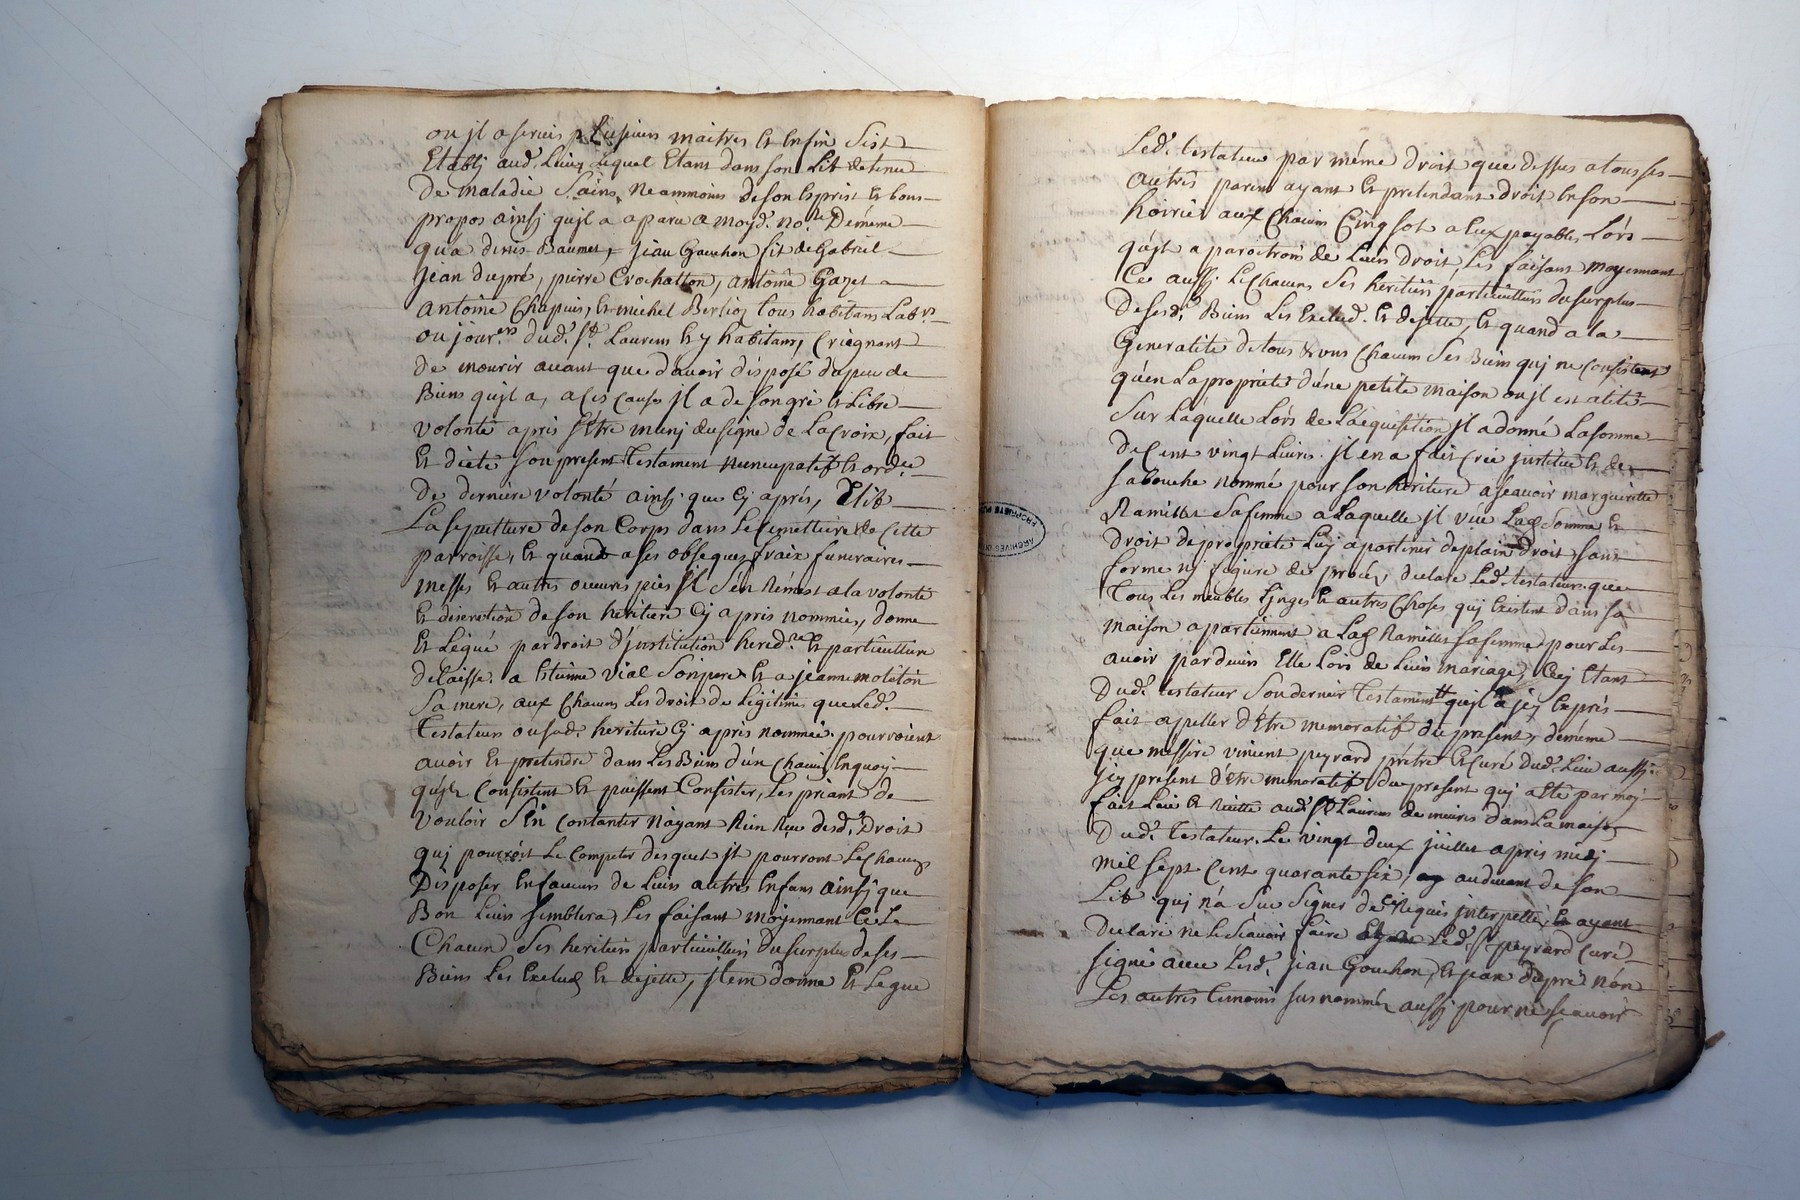 ou jl a servis plusieurs maitres et enfin s'est
Etablj aud. Lieu, lequel Etant dans son Lit detenu
De maladie sains, Neammoins de son Esprist et bons
propos ainsj qu'jl a aparu a moyd. no.re De méme
qu'a denis Baumet, jean Gouchon fils de Gabriel
jean dupré, pierre Crochatton, antoine Gayet
antoine Chapuis, et michel Berlioz tous habitans Lab.rs
ou jour.ers dud. S.t Laurens et y habitans, Craignant
de mourir avant que d'avoir disposé du peu de
Biens qu'jl a, a ces causes jl a de son gré et Libre
volonté apres s'Etre munj du signe de La Croix, fait
Et dicté son present testament nuncupatif et ord.re
De derniere volonté ainsj que Cy aprés, Elit
La sepulture de son Corps dans Le Cemettiere de Cette
parroisse, Et quand a ses obseques fraix funeraires
messes Et autres oeuvres pies jl s'en Rémest a la volonté
Et discretion de son heritiere Cy apres nommée, donne
Et Légue par droit d'jnstitution hered.re et particulliere
délaisse a Etienne vial son pere et a jeanne moleton
Sa mere, aux Chacuns Les droit de Légitime que Led.
Testateur ou sad. heritiere Cy apres nommée pourroient
avoir Et pretendre dans Les Biens d'un Chacun En quoy
qu'jls Consistent Et puissent Consister, Les priant de
vouloir s'En contanter N'ayant Rien Reçu desd. Droit
quj pourroit Le Competer desquels jls pourront Le Chacuns
Disposer En faveurs de Leurs autres Enfans ainsj que
Bon Leurs semblera, Les faisant moyennant Ce Le
Chacun Ses heritiers particulliers Du surplus de ses
Biens Les Exclud Et dejette, jtem donne Et Legue
Led. testateur par méme droit que dessus a tous ses
autres parens ayant Et pretendant droit En son
hoirie aux Chacuns Cinq sols a Eux payables Lors
qu'jls aparoitront de Leurs Droit, Les faisant moyennant
Ce aussj Le Chacuns Ses heritiers particulliers du surplus
De sesd. Biens Les Exclud. Et dejette, Et quand a la
Generalité de tous &uns Chacuns Ses Biens quj ne consistent
qu'en La proprieté d'une petite maison ou jl est alité
Sur Laquelle Lors de L'acquisition jl a donné La somme
De Cent vingt Livres jl en a fait Crée jnstitue et de
sa bouche nommé pour son heritiere a scavoir margueritte
Ramillet sa femme a Laquelle jl veut Lad. Somme Et
Droit de proprieté Luj apartenir de plain Droit sans
forme nj figure de procés, declare Led. testateur que
Tous Les meubles Linges Et autres Choses quj Existent dans sa
maison apartiennent a Lad. Ramillet sa femme pour Les
avoir par devers Elle Lors de Leurs mariage, Cecj Etant
Dud. testateur Son dernier testament qu'jl a jcy Exprés
fait apeller d'Etre memoratif du present, de méme
que messire vincent peyrard prétre Et curé dud. Lieu aussj
jcy present d'Etre memoratif du present quj a Eté par moj
fait Leu Et Recitté aud. S.t Laurens de meuris dans La maison
Dud. testateur. Le vingt deux juillet apres midj
mil sept Cent quarante six, au devant de son
Lit quj n'a Sceu Signer de ce Requis jnterpellé, Et ayant
Declaré ne Le Scavoir faire Led. S.r peyrard curé
signé avec Lesd. jean Gouchon, Et jean dupré non
Les autres temoins susnommés aussj pour ne scavoir